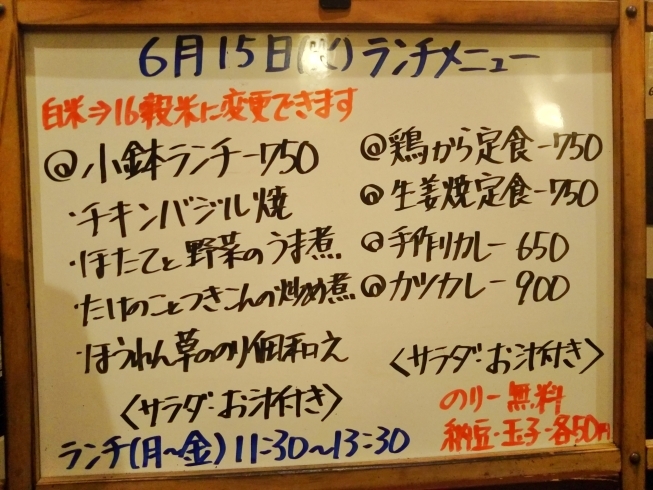 6月15日(火)ランチメニュー
白米⇒16穀米に変更できます
@小鉢ランチー750
・チキンバジル焼
・ほたてと野菜のうま煮
・たけのことつきこんの炒め煮
・ほうれん草ののり佃和え
〈サラダ・お汁付き〉
@鶏から定食ー750
@生姜焼定食ー750
@手作りカレー650
@カツカレー900
〈サラダ・お汁付き〉
のりー無料
納豆・玉子・各50円
ランチ(月〜金)11:30〜13:30